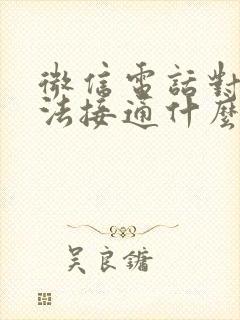 微信電話對
法接通什麼
吴良鏞